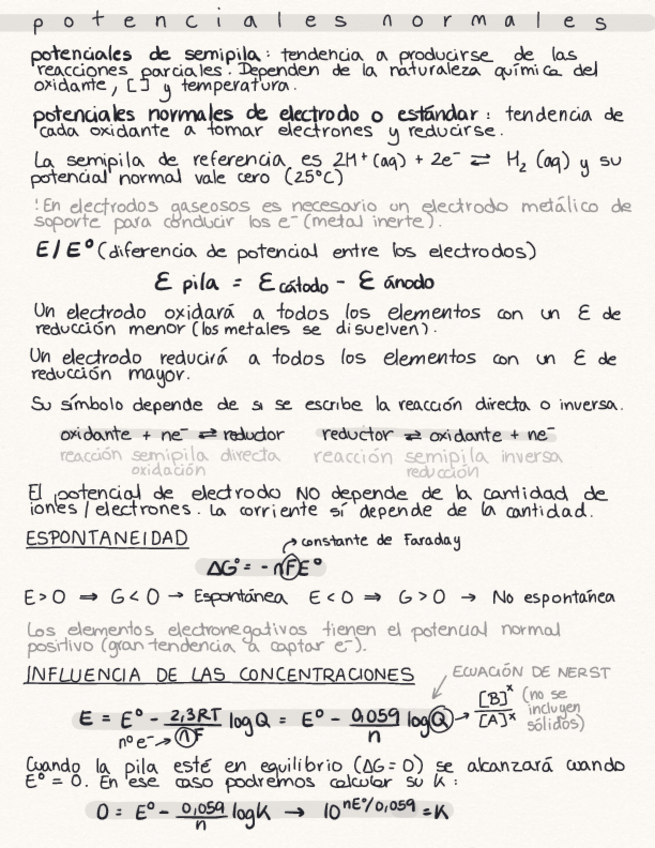 potenciales normales
potenciales de semipila: tendencia a producirse de las
reacciones parciales. Dependen de la naturaleza química del
oxidante, [] y temperatura.
potenciales normales de electrodo o estándar: tendencia de
cada oxidante a tomar electrones y reducirse.
La semipila de referencia es 2H⁺(aq) + 2e⁻ ⇄ H₂ (aq) y su
potencial normal vale cero (25ºC)
!En electrodos gaseosos es necesario un electrodo metálico de
soporte para conducir los e⁻ (metal inerte).
E/Eº (diferencia de potencial entre los electrodos)
Ɛ pila = Ɛ cátodo - Ɛ ánodo
Un electrodo oxidará a todos los elementos con un Ɛ de
reducción menor (los metales se disuelven).
Un electrodo reducirá a todos los elementos con un Ɛ de
reducción mayor.
Su símbolo depende de si se escribe la reacción directa o inversa.
oxidante + ne⁻ ⇄ reductor   reductor ⇄ oxidante + ne⁻
reacción semipila directa   reacción semipila inversa
oxidación   reducción
El potencial de electrodo NO depende de la cantidad de
iones/electrones. La corriente sí depende de la cantidad.
ESPONTANEIDAD
→ constante de Faraday
ΔGº = -nFEº
E>0 ⇒ G<0 → Espontánea   E<0 ⇒ G>0 → No espontánea
Los elementos electronegativos tienen el potencial normal
positivo (gran tendencia a captar e⁻).
INFLUENCIA DE LAS CONCENTRACIONES
ECUACIÓN DE NERST
E = Eº - 2,3RT/nF logQ = Eº - 0,059/n logQ → [B]ˣ/[A]ˣ (no se incluyen sólidos)
nº e⁻ →
Cuando la pila esté en equilibrio (ΔG=0) se alcanzará cuando
Eº = 0. En ese caso podremos calcular su K:
0 = Eº - 0,059/n logK → 10^nEº/0,059 = K